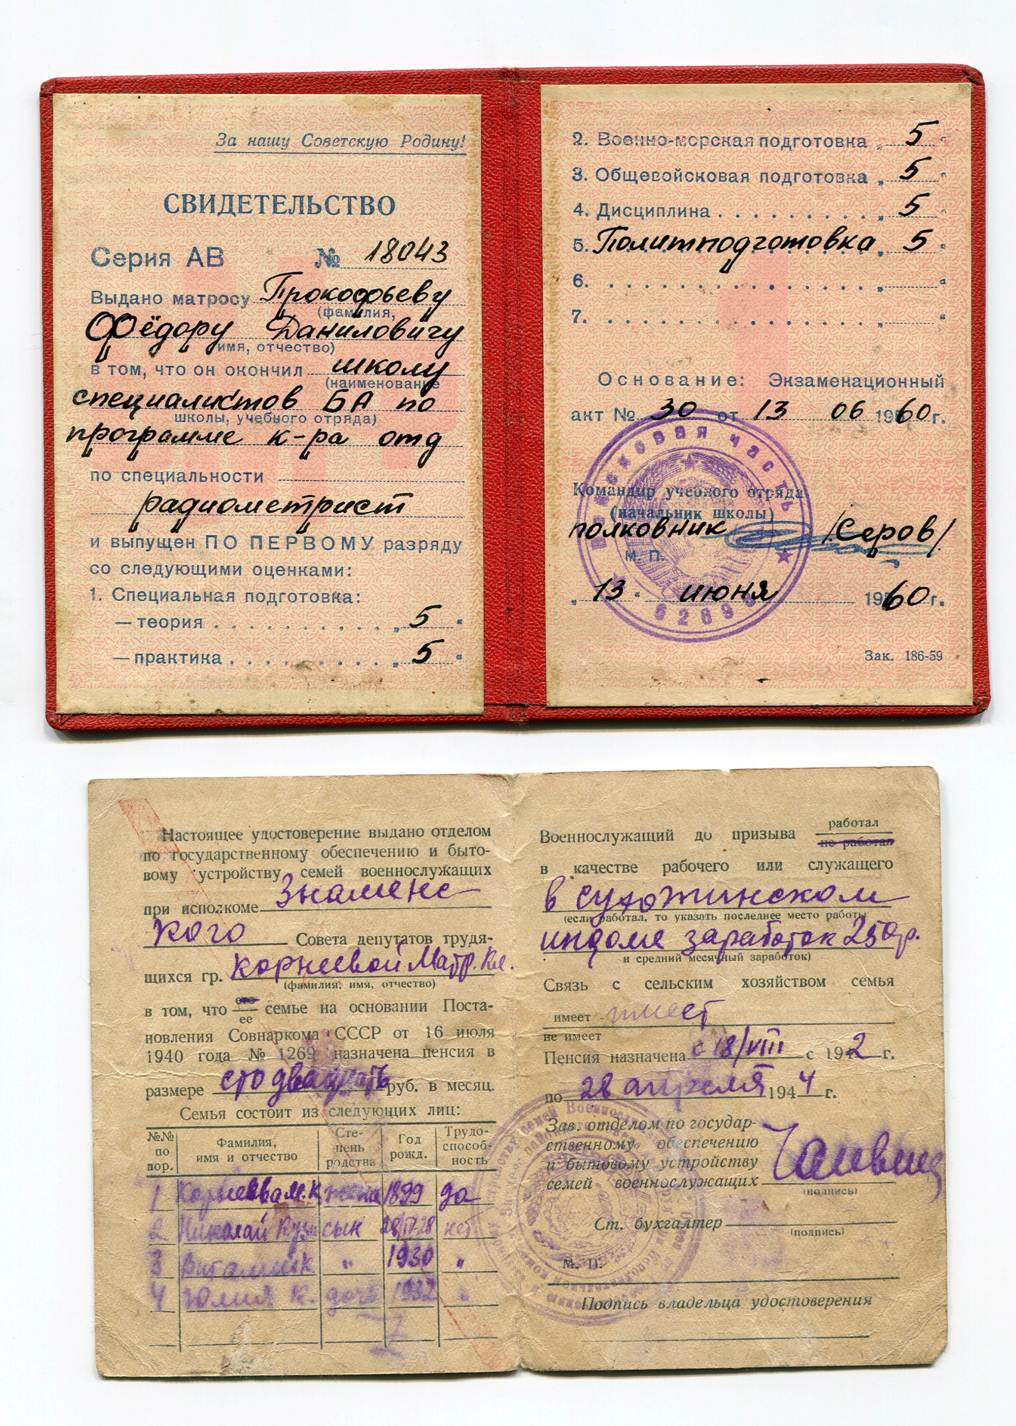 За нашу Советскую Родину!
СВИДЕТЕЛЬСТВО
Серия АВ № 18043
Выдано матросу Прокофьеву
(фамилия,
Фёдору Даниловичу
имя, отчество)
в том, что он окончил школу
(наименование
специалистов БА по
школы, учебного отряда)
программе к-ра отд
по специальности
радиометрист
и выпущен ПО ПЕРВОМУ разряду
со следующими оценками:
1. Специальная подготовка:
— теория . . . . . . . . . . . „ 5 “
— практика . . . . . . . . . . „ 5 “
2. Военно-морская подготовка „ 5 “
3. Общевойсковая подготовка „ 5 “
4. Дисциплина . . . . . . . . . . „ 5 “
5. Политподготовка „ 5 “
6. . . . . . . . . . . . . . . . . . „ “
7. . . . . . . . . . . . . . . . . . „ “
Основание: Экзаменационный
акт № 30 от 13 06 1960 г.
Командир учебного отряда
(начальник школы)
полковник /Серов/
М. П.
„ 13 “ июня 1960 г.
Войсковая часть
Зак. 186-59
Настоящее удостоверение выдано отделом
по государственному обеспечению и быто-
вому устройству семей военнослужащих
при исполкоме Знаменс
кого Совета депутатов трудя-
щихся гр. Корнеевой Матр. Кл.
(фамилия, имя, отчество)
в том, что его семье на основании Поста-
ее
новления Совнаркома СССР от 16 июля
1940 года № 1269 назначена пенсия в
размере сто двадцать руб. в месяц.
Семья состоит из следующих лиц:
№№ по пор. Фамилия, имя и отчество Сте-пень родства Год рожд. Трудо-способ-ность
1 Корнеева М. К жена 1899 да
2 Николай Кузь сын 28 нет
3 Виталий К " 1930 "
4 Юлия К. дочь 1932 "
Военнослужащий до призыва работал
не работал
в качестве рабочего или служащего
в Сухотинском
(если работал, то указать последнее место работы
индоме заработок 250 р.
и средний месячный заработок)
Связь с сельским хозяйством семья
имеет имеет
не имеет
Пенсия назначена с 18/VIII с 1942 г.
по 28 апреля 1944 г.
Зав. отделом по государ-
ственному обеспечению
и бытовому устройству
семей военнослужащих
(подпись)
Ст. бухгалтер
(подпись)
М. П.
Подпись владельца удостоверения